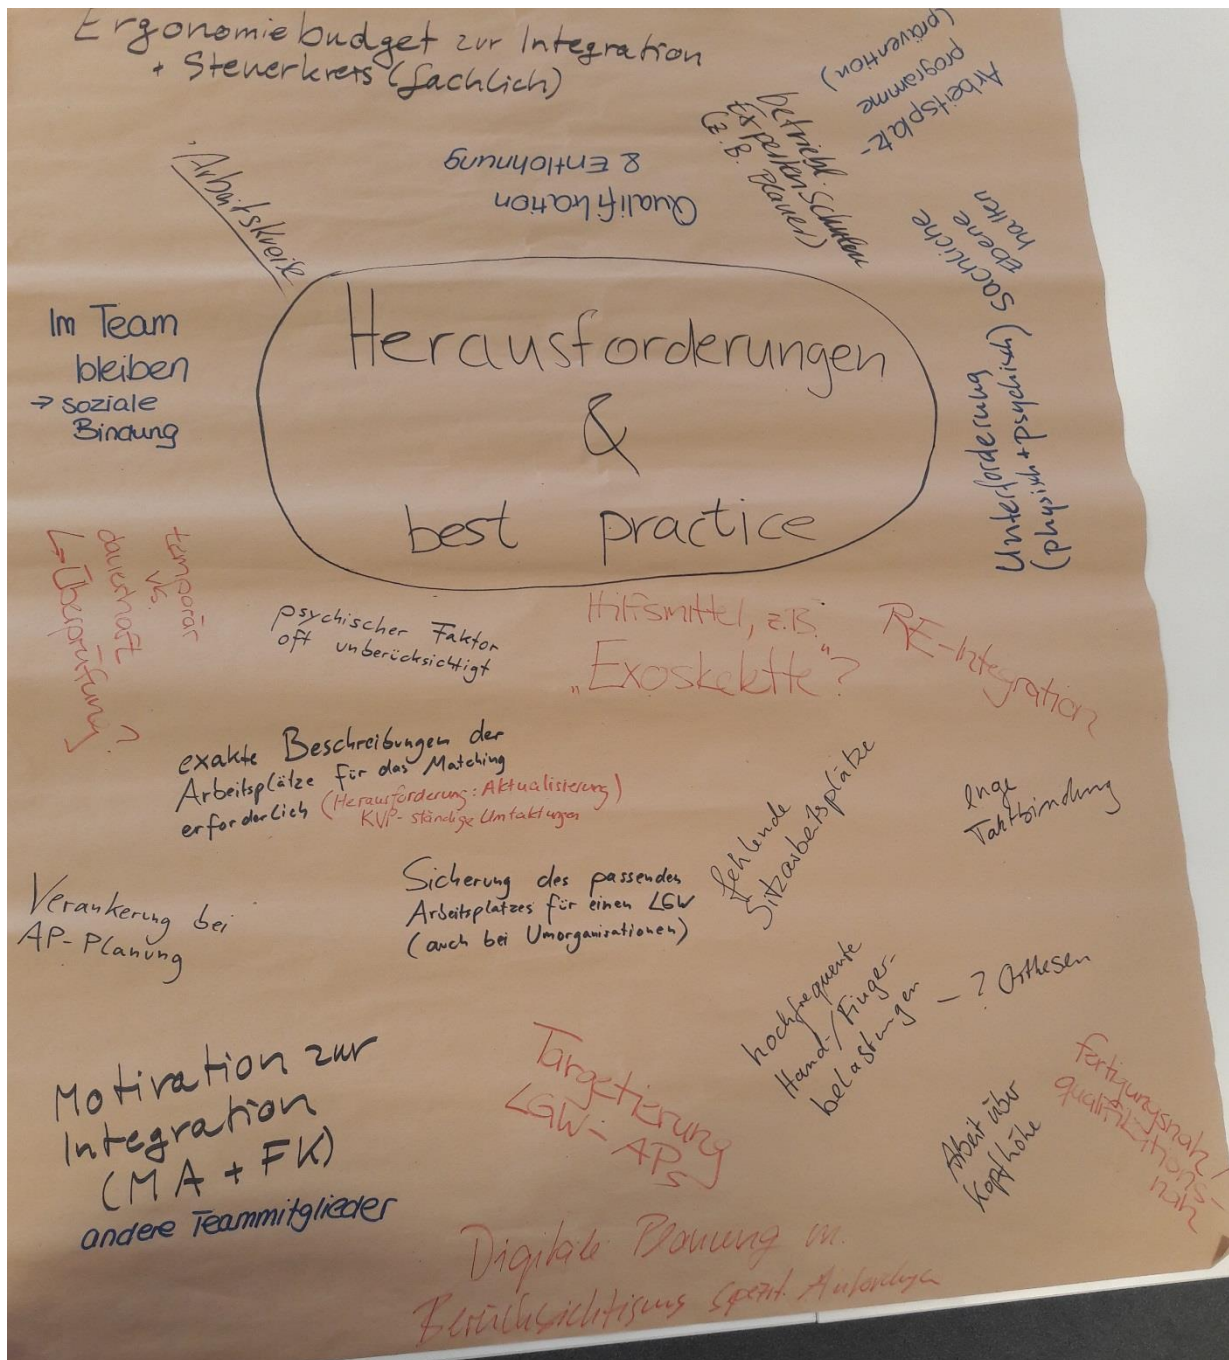 Ergonomiebudget zur Integration
+ Steuerkreis (fachlich)
Arbeitsplatz-
programme
(prävention)
betriebl.
Experten Schulen
(z.B. Planer)
Qualifikation
& Entlohnung
Arbeitskreise
sachliche
Ebene
halten
Im Team
bleiben
→ soziale
Bindung
Herausforderungen
&
best practice
Unterforderung
(physisch + psychisch)
temporär
vs.
dauerhaft
↳ Überprüfung?
psychischer Faktor
oft unberücksichtigt
Hilfsmittel, z.B.
„Exoskelette"?
RE-Integration
exakte Beschreibungen der
Arbeitsplätze für das Matching
erforderlich (Herausforderung: Aktualisierung)
KVP- ständige Umtaktungen
fehlende
Sitzarbeitsplätze
enge
Taktbindung
Verankerung bei
AP-Planung
Sicherung des passenden
Arbeitsplatzes für einen LGW
(auch bei Umorganisationen)
hochfrequente
Hand-/Finger-
belastungen
– ? Orthesen
Motivation zur
Integration
(MA + FK)
andere Teammitglieder
Targetierung
LGW-APs
Arbeit über
Kopfhöhe
fertigungsnah /
qualifikations-
nah
Digitale Planung m.
Berücksichtigung spezif.